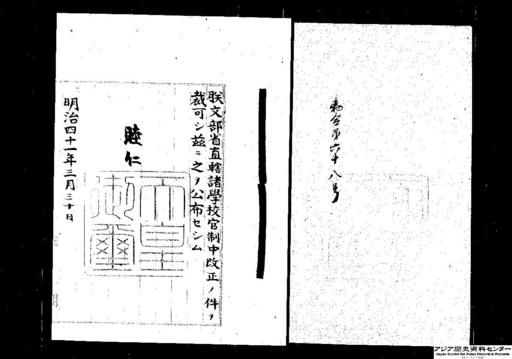 勅令第六十八号
朕文部省直轄諸學校官制中改正ノ件ヲ
裁可シ茲ニ之ヲ公布セシム
睦仁
天皇御璽
明治四十一年三月三十日
アジア歴史資料センター
Japan Center for Asian Historical Records